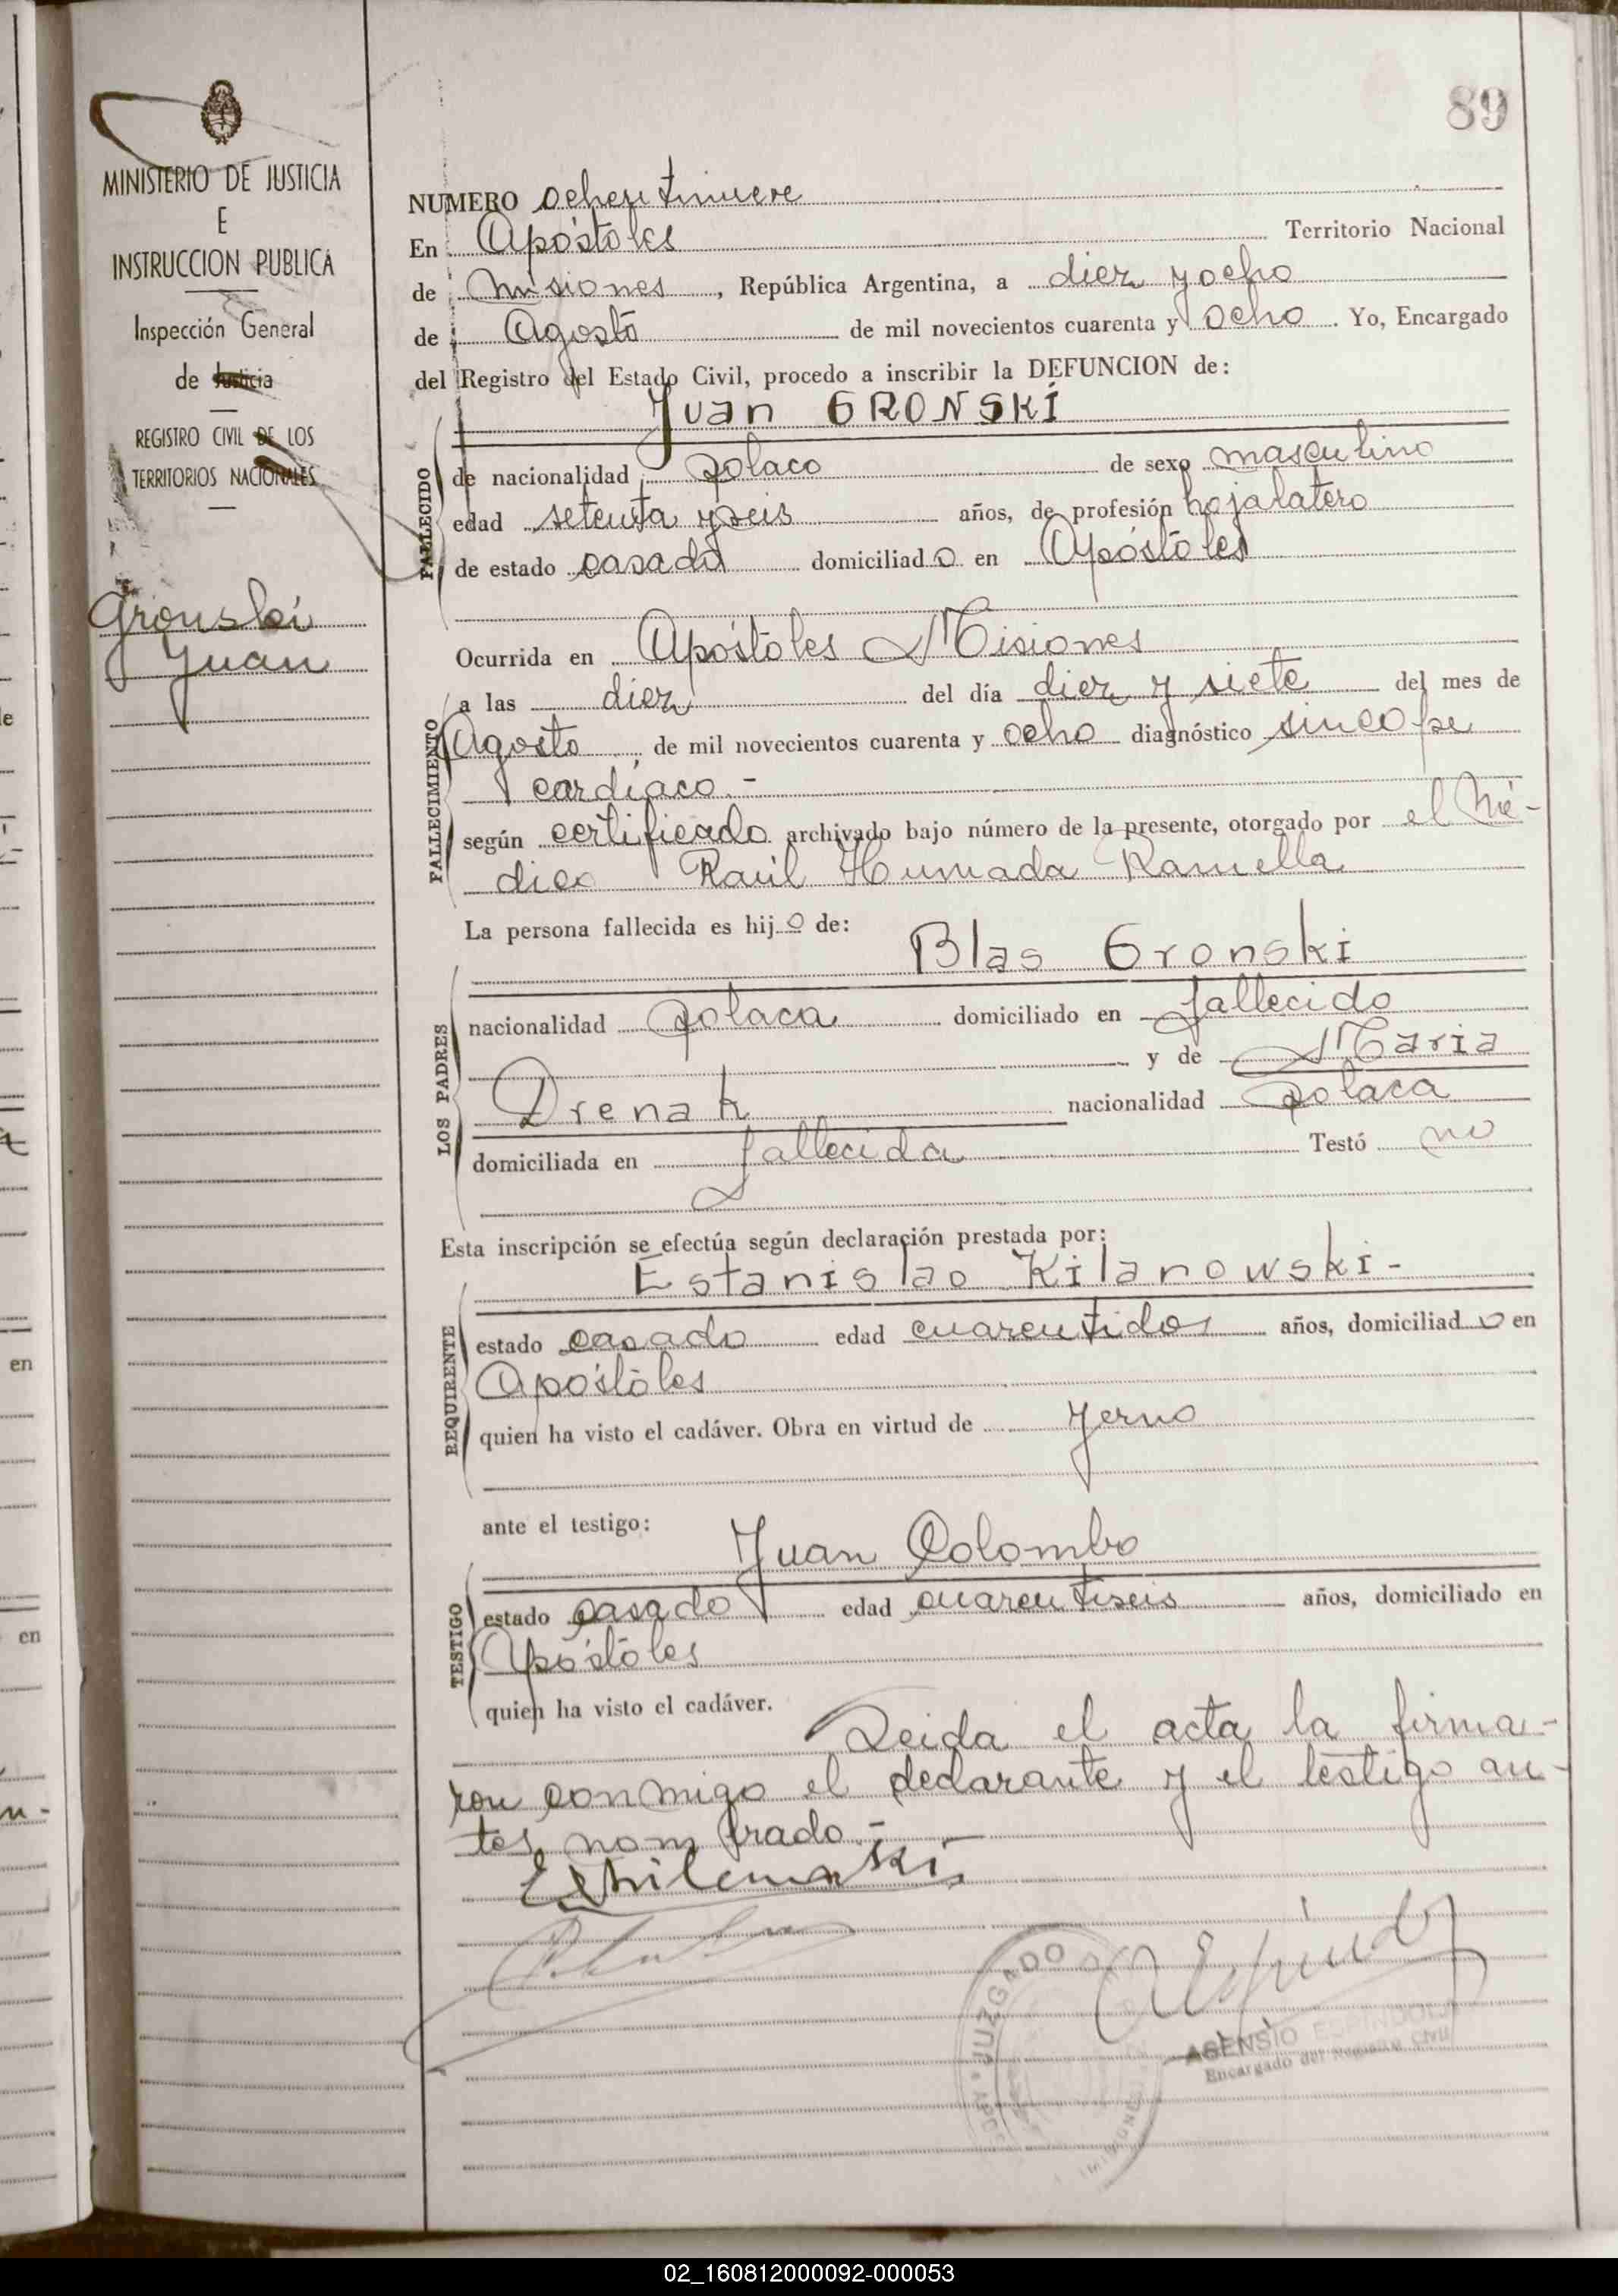 89
MINISTERIO DE JUSTICIA
E
INSTRUCCION PUBLICA
Inspección General
de Justicia
REGISTRO CIVIL DE LOS
TERRITORIOS NACIONALES
Gronski
Juan
NUMERO ochentinueve
En Apóstoles Territorio Nacional
de Misiones, República Argentina, a diez y ocho
de Agosto de mil novecientos cuarenta y ocho. Yo, Encargado
del Registro del Estado Civil, procedo a inscribir la DEFUNCION de:
Juan GRONSKI
FALLECIDO
de nacionalidad polaco de sexo masculino
edad setenta y seis años, de profesión hojalatero
de estado casado domiciliado en Apóstoles
Ocurrida en Apóstoles Misiones
FALLECIMIENTO
a las diez del día diez y siete del mes de
Agosto, de mil novecientos cuarenta y ocho diagnóstico sincope
cardíaco.-
según certificado archivado bajo número de la presente, otorgado por el Mé-
dico Raúl Humada Ramella
La persona fallecida es hijo de:
Blas Gronski
LOS PADRES
nacionalidad polaca domiciliado en fallecido
y de Maria
Drenak nacionalidad polaca
domiciliada en fallecida Testó no
Esta inscripción se efectúa según declaración prestada por:
Estanislao Kilanowski-
REQUIRENTE
estado casado edad cuarentidos años, domiciliado en
Apóstoles
quien ha visto el cadáver. Obra en virtud de yerno
ante el testigo:
Juan Colombo
TESTIGO
estado casado edad cuarentiseis años, domiciliado en
Apóstoles
quien ha visto el cadáver.
Leida el acta la firma-
ron conmigo el declarante y el testigo an-
tes nombrado.-
JUZGADO
MISIONES
ASENSIO ESPINDOLA
Encargado del Registro Civil
en
en
02_160812000092-000053